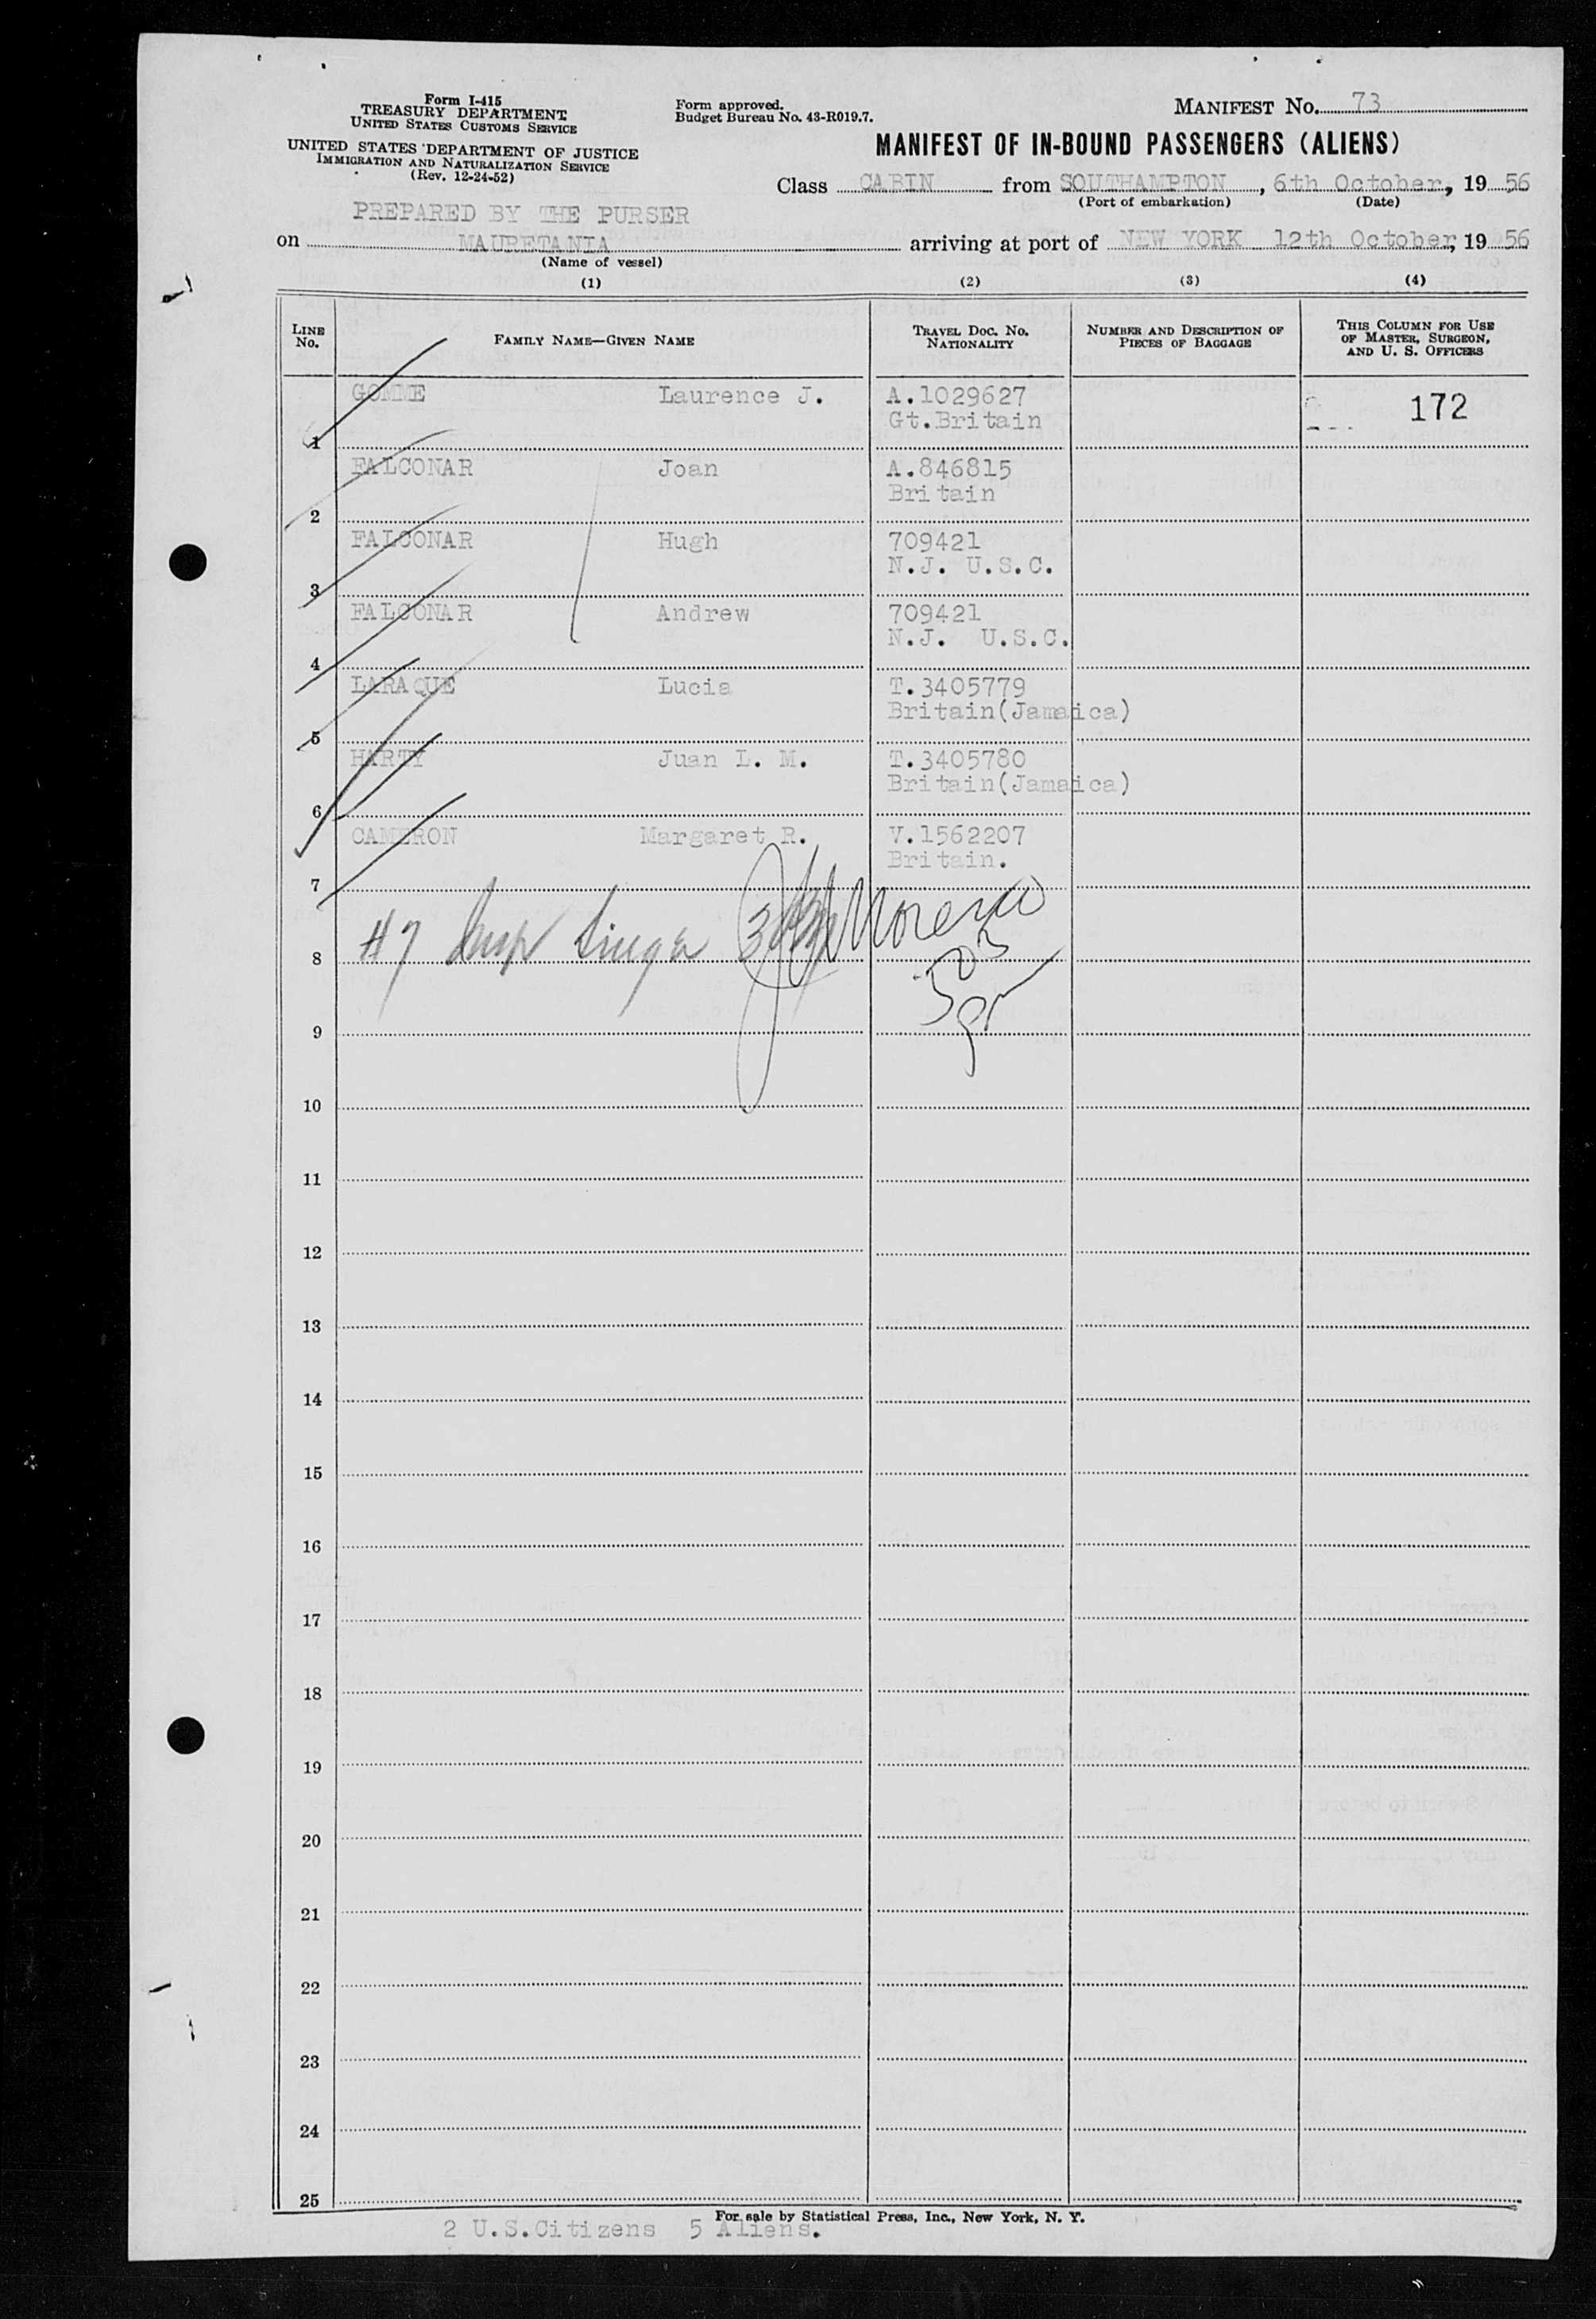 Form I-415
TREASURY DEPARTMENT
UNITED STATES CUSTOMS SERVICE
UNITED STATES DEPARTMENT OF JUSTICE
IMMIGRATION AND NATURALIZATION SERVICE
(Rev. 12-24-52)
Form approved.
Budget Bureau No. 43-R019.7.
MANIFEST NO. 73
MANIFEST OF IN-BOUND PASSENGERS (ALIENS)
Class CABIN from SOUTHAMPTON, 6th October, 19 56
(Port of embarkation) (Date)
PREPARED BY THE PURSER
on MAURETANIA arriving at port of NEW YORK 12th October, 19 56
(Name of vessel)
(1) (2) (3) (4)
LINE NO. FAMILY NAME—GIVEN NAME TRAVEL DOC. NO. NATIONALITY NUMBER AND DESCRIPTION OF PIECES OF BAGGAGE THIS COLUMN FOR USE OF MASTER, SURGEON, AND U. S. OFFICERS
GOMME Laurence J. A.1029627 172
Gt.Britain
1
FALCONAR Joan A.846815
Britain
2
FALCONAR Hugh 709421
N.J. U.S.C.
3
FALCONAR Andrew 709421
N.J. U.S.C.
4
LARAQUE Lucia T.3405779
Britain(Jamaica)
5
HARTY Juan L. M. T.3405780
Britain(Jamaica)
6
CAMERON Margaret R. V.1562207
Britain.
7
#7 Insp
8
9
10
11
12
13
14
15
16
17
18
19
20
21
22
23
24
25
For sale by Statistical Press, Inc., New York, N. Y.
2 U.S.Citizens 5 Aliens.